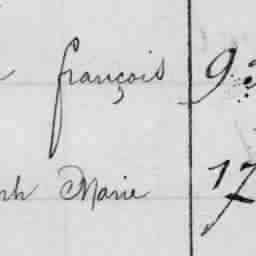 françois 9
Marie 17